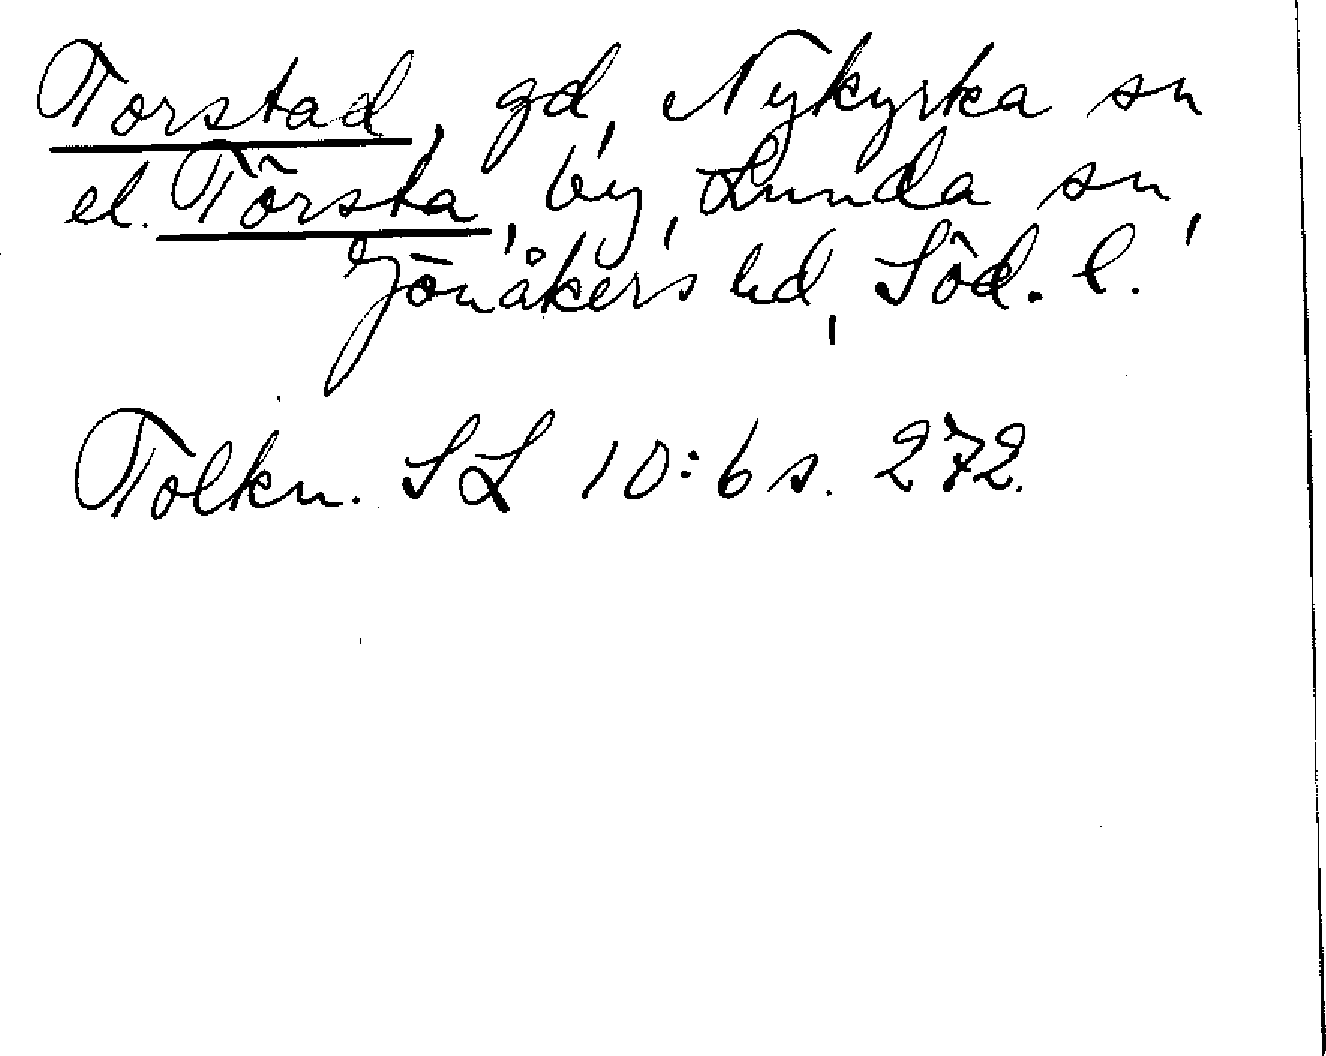 Torstad, gd, Nykyrka sn
el. Törsta, by, Lunda sn,
Jönåkers hd, Söd. l.
Tolkn. SL 10:6 s. 272.